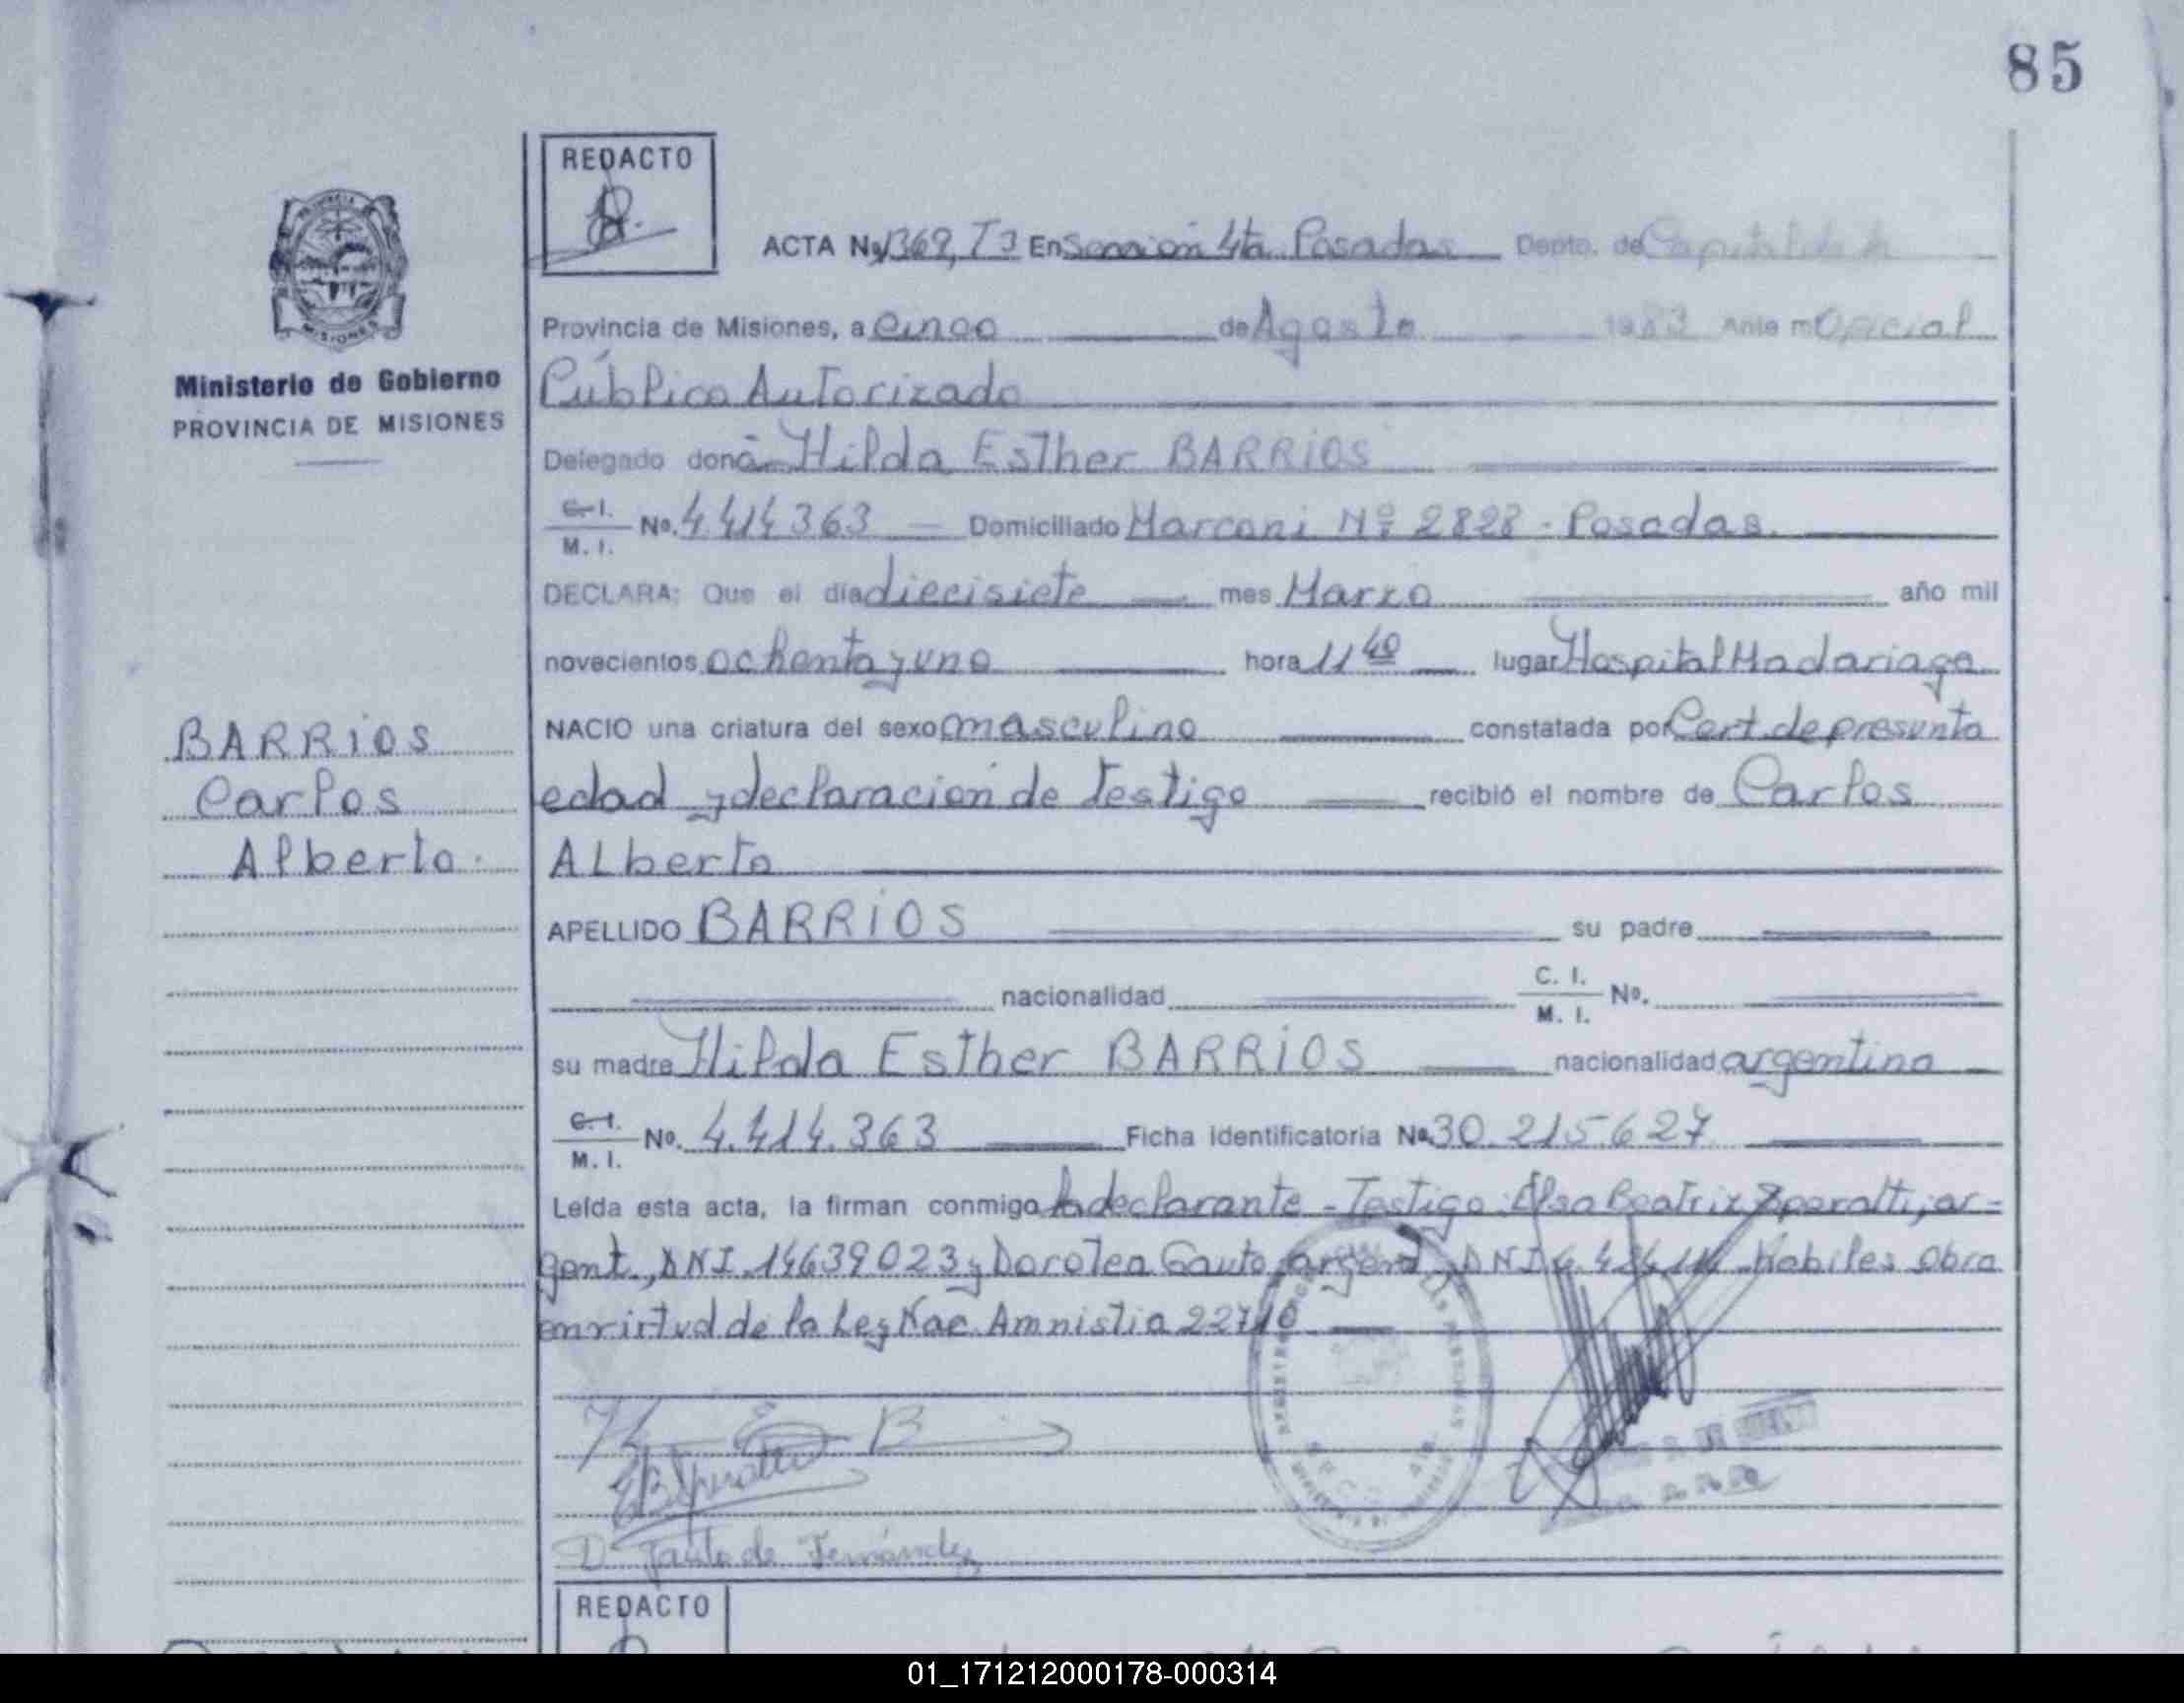 85
REDACTO
ACTA No 1369, T3 En Sección 4ta Posadas Depto. de Capital
Provincia de Misiones, a Cinco de Agosto 1983 Ante mi Oficial
Público Autorizado
Delegado doña Hilda Esther BARRIOS
C.I. M.I. No. 4.414.363 Domiciliado Marconi Nº 2828 - Posadas.
DECLARA: Que el día diecisiete mes Marzo año mil
novecientos ochenta y uno hora 11 40 lugar Hospital Madariaga
NACIO una criatura del sexo masculino constatada por Cert. de presunta
edad y declaracion de testigo recibió el nombre de Carlos
Alberto
APELLIDO BARRIOS su padre
nacionalidad C. I. M. I. No.
su madre Hilda Esther BARRIOS nacionalidad argentina
C.I. M.I. No. 4.414.363 Ficha Identificatoria No. 30.215.627
Leída esta acta, la firman conmigo la declarante - Testigo: Elsa Beatriz Speratti, ar-
gent., DNI. 14639023 y Dorotea Gauto, argent, DNI Habiles Obra
en virtud de la Ley Nac. Amnistia 22710
D. Gauto de Fernández
Ministerio de Gobierno
PROVINCIA DE MISIONES
BARRIOS
Carlos
Alberto.
REDACTO
01_171212000178-000314